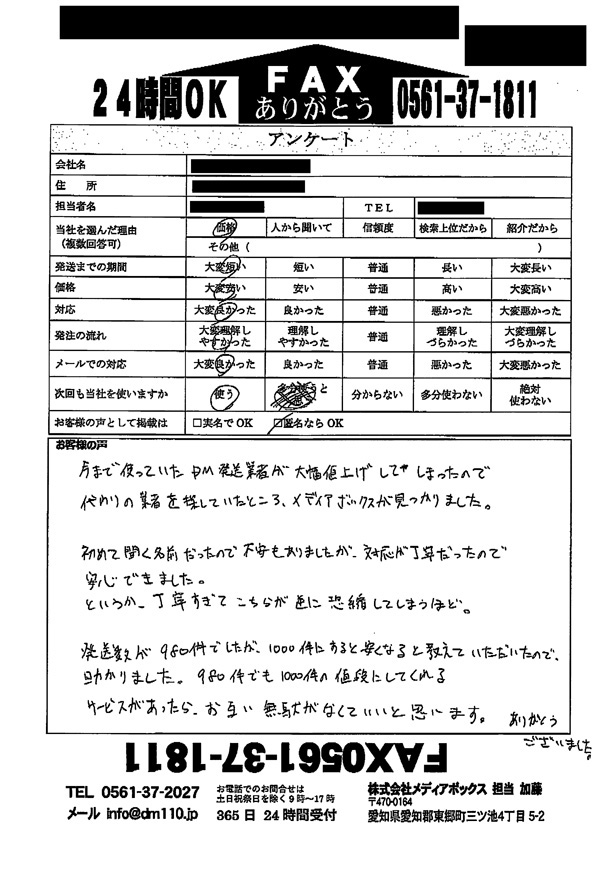 24時間OK FAX ありがとう 0561-37-1811
アンケート
会社名
住 所
担当者名 TEL
当社を選んだ理由（複数回答可） 価格 人から聞いて 信頼度 検索上位だから 紹介だから
その他（ ）
発送までの期間 大変短い 短い 普通 長い 大変長い
価格 大変安い 安い 普通 高い 大変高い
対応 大変良かった 良かった 普通 悪かった 大変悪かった
発注の流れ 大変理解しやすかった 理解しやすかった 普通 理解しづらかった 大変理解しづらかった
メールでの対応 大変良かった 良かった 普通 悪かった 大変悪かった
次回も当社を使いますか 使う 多分使うと思う 分からない 多分使わない 絶対使わない
お客様の声として掲載は □実名でOK □匿名ならOK
お客様の声
今まで使っていたDM発送業者が大幅値上げしてしまったので
代わりの業者を探していたところ、メディアボックスが見つかりました。
初めて聞く名前だったので不安もありましたが、対応が丁寧だったので
安心できました。
というか、丁寧すぎてこちらが逆に恐縮してしまうほど。
発送数が980件でしたが、1000件にすると安くなると教えていただいたので、
助かりました。980件でも1000件の値段にしてくれる
サービスがあったら、お互い無駄がなくていいと思います。 ありがとう
ございました。
FAX0561-37-1811
TEL 0561-37-2027 お電話でのお問合せは 株式会社メディアボックス 担当 加藤
土日祝祭日を除く9時〜17時 〒470-0164
メール info@dm110.jp 365日 24時間受付 愛知県愛知郡東郷町三ツ池4丁目5-2